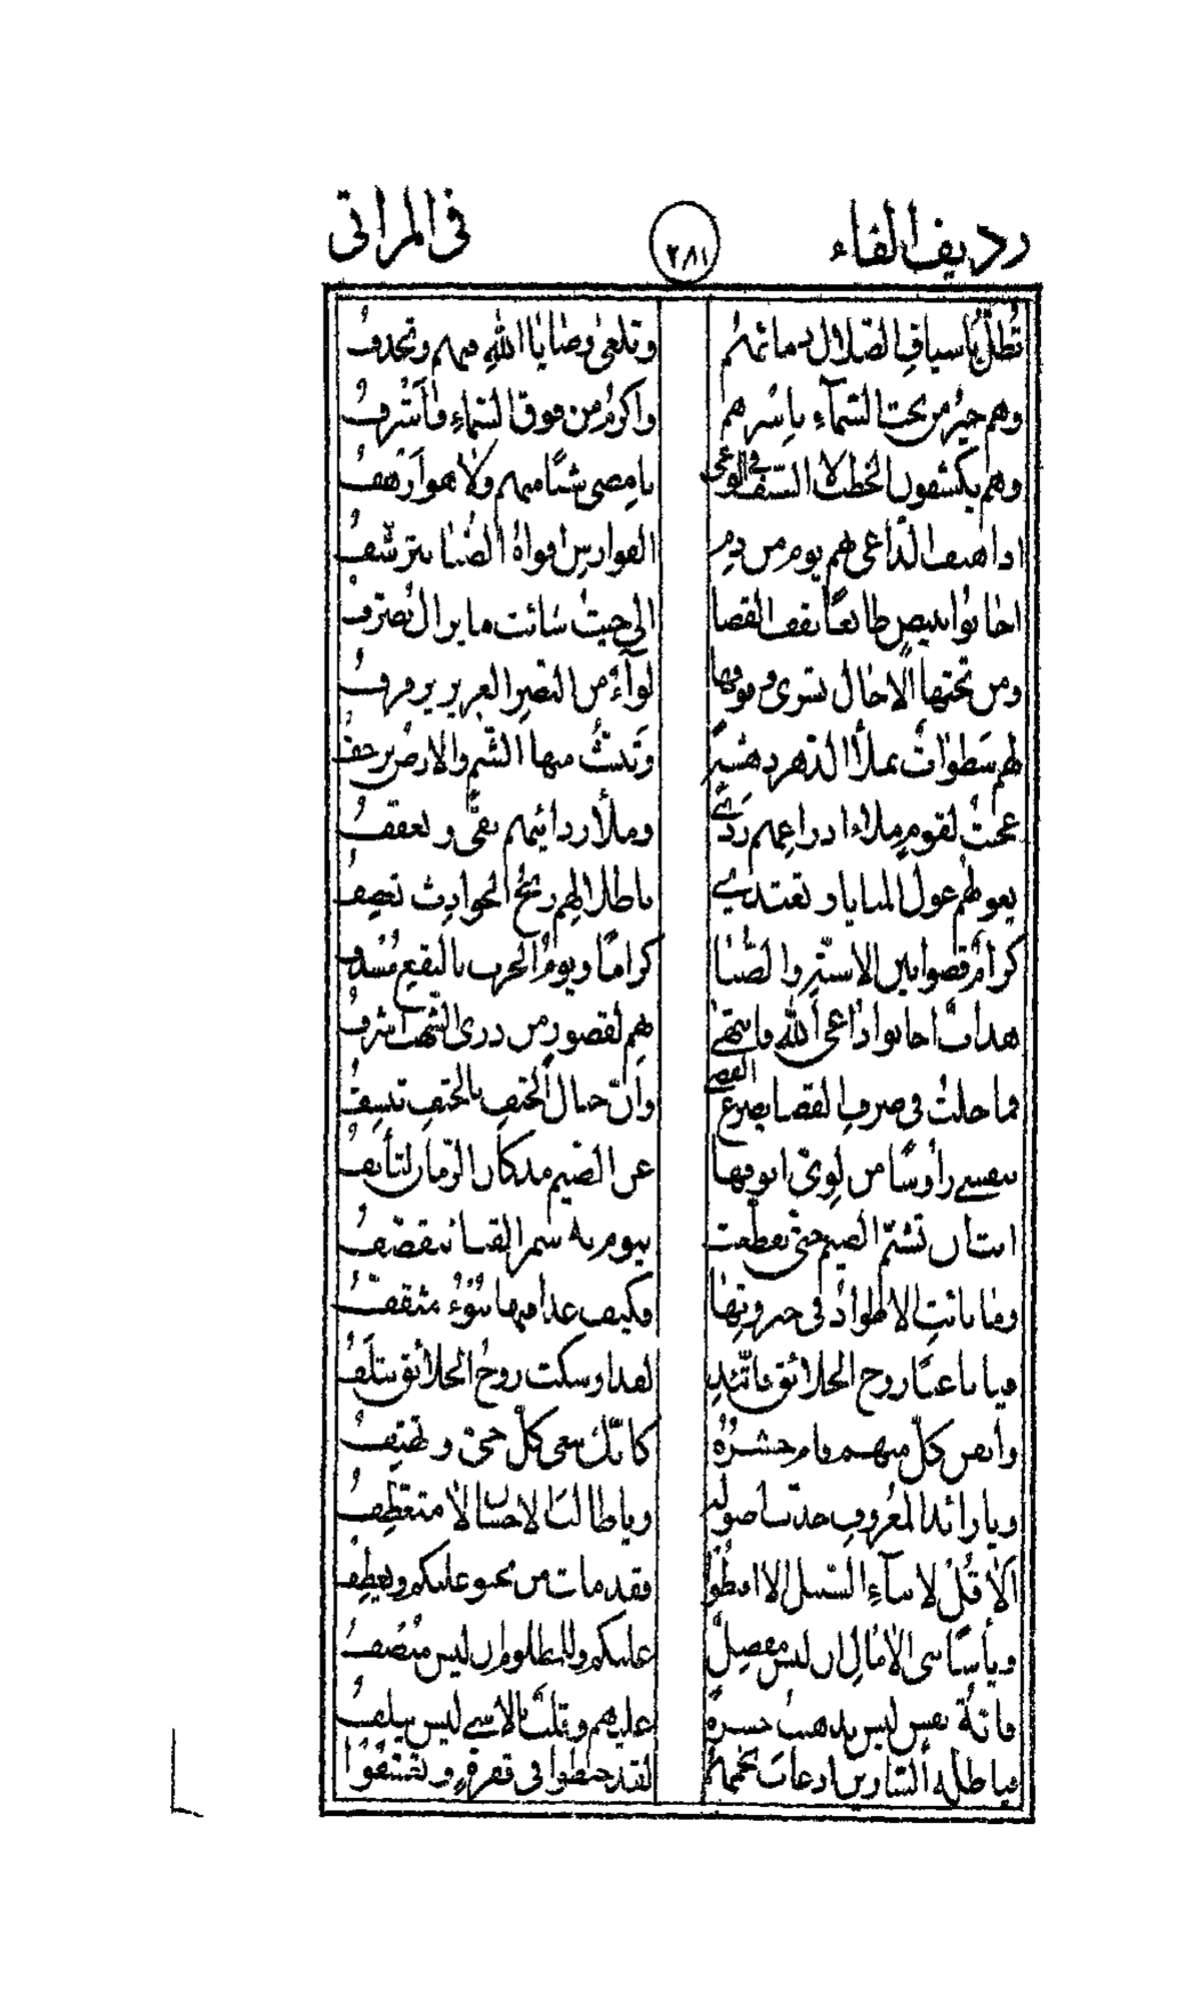 رديف الفاء ٢٨١ في المراثي
تُطَلُّ بأسيافِ الضلال دمائهم وتلغى وصايا الله فيهم وتحذفُ
وهم خيرُ من تحت السَّمآءِ بأسرهم وأكرمُ من فوق السَّماءِ وأشرفُ
وهم يكشفون الخطب لا السيف في الوغى بامضى شبًا منهم ولا هو أرهفُ
اذا هتف الدّاعى بهم يوم من دمِ الفوارس افواهُ الضُّبا تترشّفُ
اجابوا ببيضٍ طائعًا يقف القضا الى حيث شائت ما يزال يُصَرَّفُ
ومن تحتها الآجال تسرى وفوقها لوآءٌ من النصر العزيز يرفرفُ
لهم سَطَواتٌ تملأ الدّهر دهشةً وتنبثُّ منها الشُّم والارضُ ترجفُ
عجبتُ لقومٍ ملاء ادراعهم ردًى وملأ ردائيهم تقًى وتعففُ
يغولهم غول المنايا وتغتدي باطلالهم ريحُ الحوادثِ تعصفُ
كرامٌ قضوا بين الاسنّةِ والضُّبا كرامًا ويومُ الحرب بالنقع مُسْدِفُ
هداةٌ اجابوا داعى الله فانتهى بهم لقصورٍ من ذرى الشُّهب اشرفُ
فما خلتُ في صرفِ القضا يصرع القضا وانّ جبال الحتفِ بالحتفِ تنسفُ
بنفسي رأوسًا من لوىّ انوفها عن الضيم مذ كان الزّمان لتأنفُ
ابت ان تشمّ الضيم حتّى تقطّعت بيوم به سمر القنا تتقصّفُ
وما نائتِ الاطواد في جبروتها فكيف غدا فيها ينوءُ مثقّفُ
فيا ناعيًا روح الخلائق فاتّئد لقد اوشكت روحُ الخلائق تتلَفُ
وأيقن كلّ منهم قام حشرُهُ كانّك تنعى كلّ حىّ وتهتِفُ
ويا رائد المعروفِ جذّت أصوله ويا طالب الاحسان لا متعطّفُ
ألا قُلْ لابناءِ السّبيل الا اقنطوا فقد مات من يحنو عليكم ويعطفُ
ويأسًا بنى الامال ان ليس مفضلٌ عليكم وللمظلوم ان ليس منصفُ
فايّةُ نفس ليس يذهب حسرةً عليهم وقلبٌ بالاسى ليس يتلفُ
فيا طلبة السّارين ان غاب نجمهم لقد خبطوا في قفرةٍ وتعسّفوا